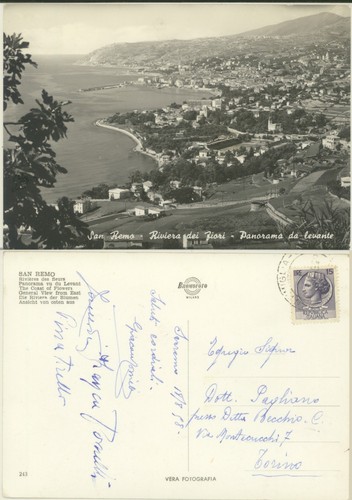 San Remo - Riviera dei Fiori - Panorama da levante
SAN REMO
Rivière des fleurs
Panorama vu du Levant
The Coast of Flowers
General View from East
Die Riviera der Blumen
Ansicht von osten aus
Sanremo 18/9/58
Saluti cordiali.
15
Egregio Signor
Dott. Pagliano
presso Ditta Bocchio C.
Via Montecucchi 7
Torino
243
VERA FOTOGRAFIA
MILANO